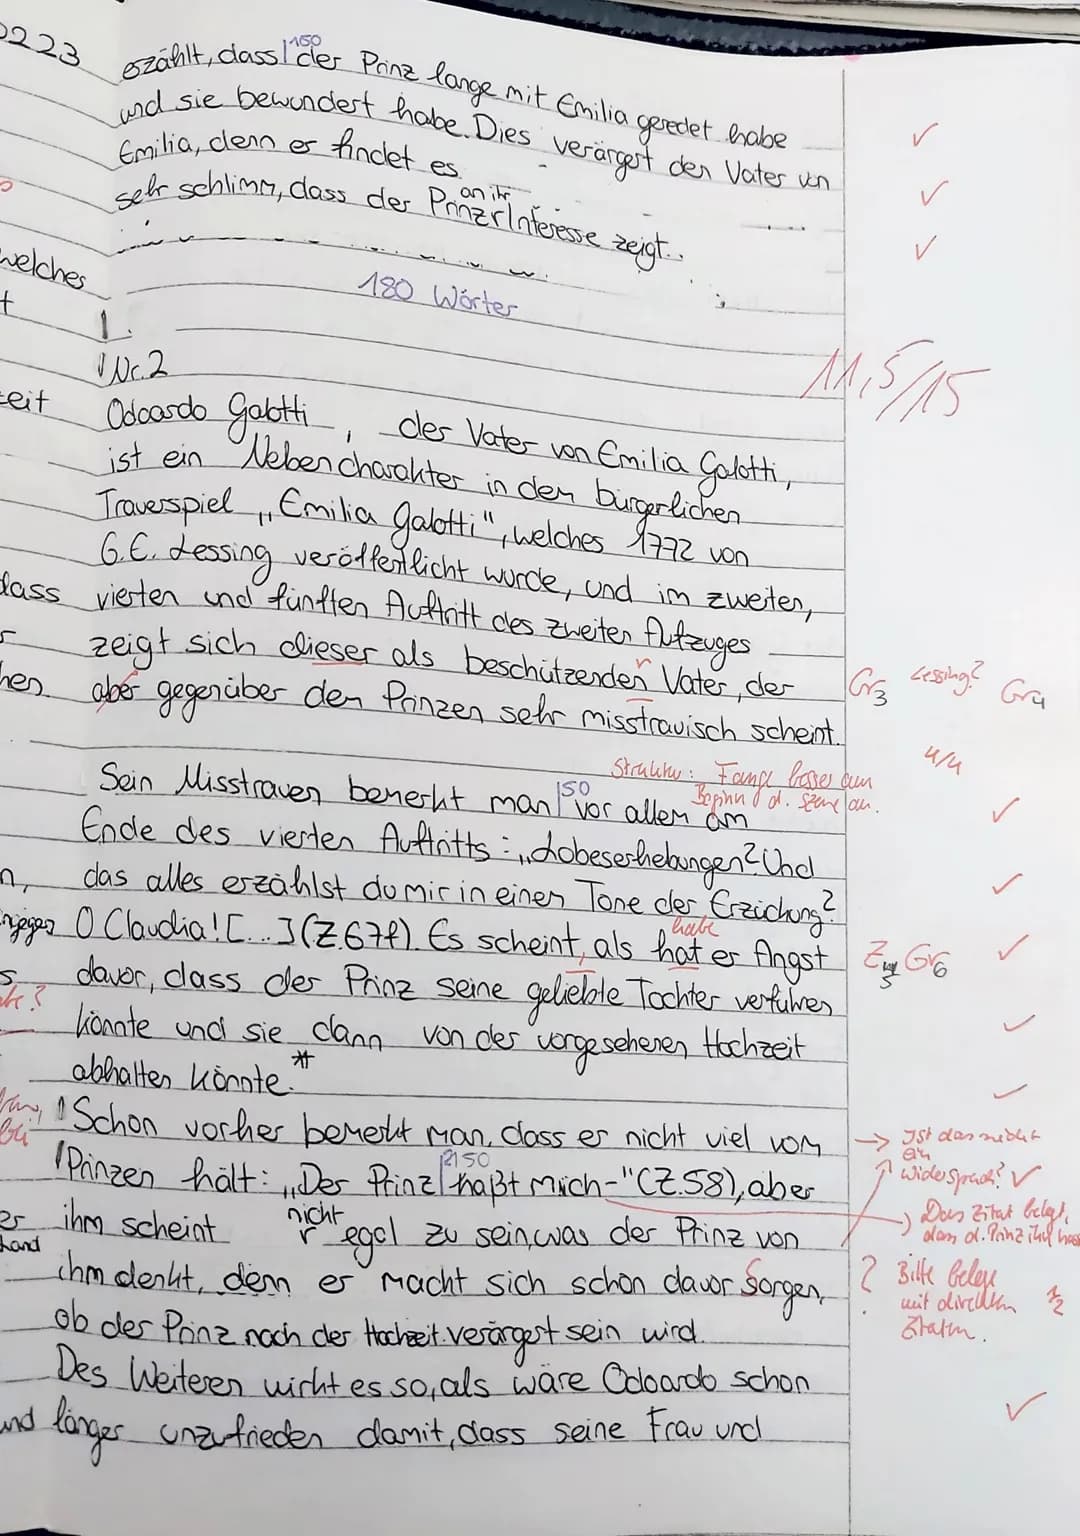 0223
erzählt, dass | 150 der Prinz lange mit Emilia geredet habe
und sie bewundert habe. Dies verärgert den Vater von
Emilia, denn er findet es
sehr schlimm, dass der Prinz an ihr Interesse zeigt.
180 Wörter
welches
t
1.
Nr. 2
11,5/15
Odoardo Galotti, der Vater von Emilia Galotti,
ist ein Nebencharakter in dem bürgerlichen
Trauerspiel „Emilia Galotti", welches 1772 von
G.E. Lessing veröffentlicht wurde, und im zweiten,
dass
vierten und fünften Auftritt des zweiten Aufzuges
zeigt sich dieser als beschützenden r Vater, der
Gr3 Lessing? Gr4
aber gegenüber dem Prinzen sehr misstrauisch scheint.
4/4
Struktur: Fange besser am
Beginn d. Szene an.
Sein Misstrauen bemerkt man | 50 vor allem am
Ende des vierten Auftritts: „Lobeserhebungen? Und
das alles erzählst du mir in einem Tone der Erziehung?
O Claudia! [...] (Z. 67f). Es scheint, als hat er Angst
habe
Z Gr6
davor, dass der Prinz seine geliebte Tochter verführen
könnte und sie dann von der vorgesehenen Hochzeit
abhalten könnte.*
Schon vorher bemerkt man, dass er nicht viel vom
→ Ist das nicht
ein
Widerspruch?
Prinzen hält: „Der Prinz | 2150 haßt mich-" (Z. 58), aber
Das Zitat belegt,
dass d. Prinz ihn
ihm scheint nicht egal zu sein, was der Prinz von
ihm denkt, denn er macht sich schon davor Sorgen,
? Bitte belege
mit direkten
Zitaten.
1/2
ob der Prinz nach der Hochzeit verärgert sein wird.
Des Weiteren wirkt es so, als wäre Odoardo schon
und
länger unzufrieden damit, dass seine Frau und